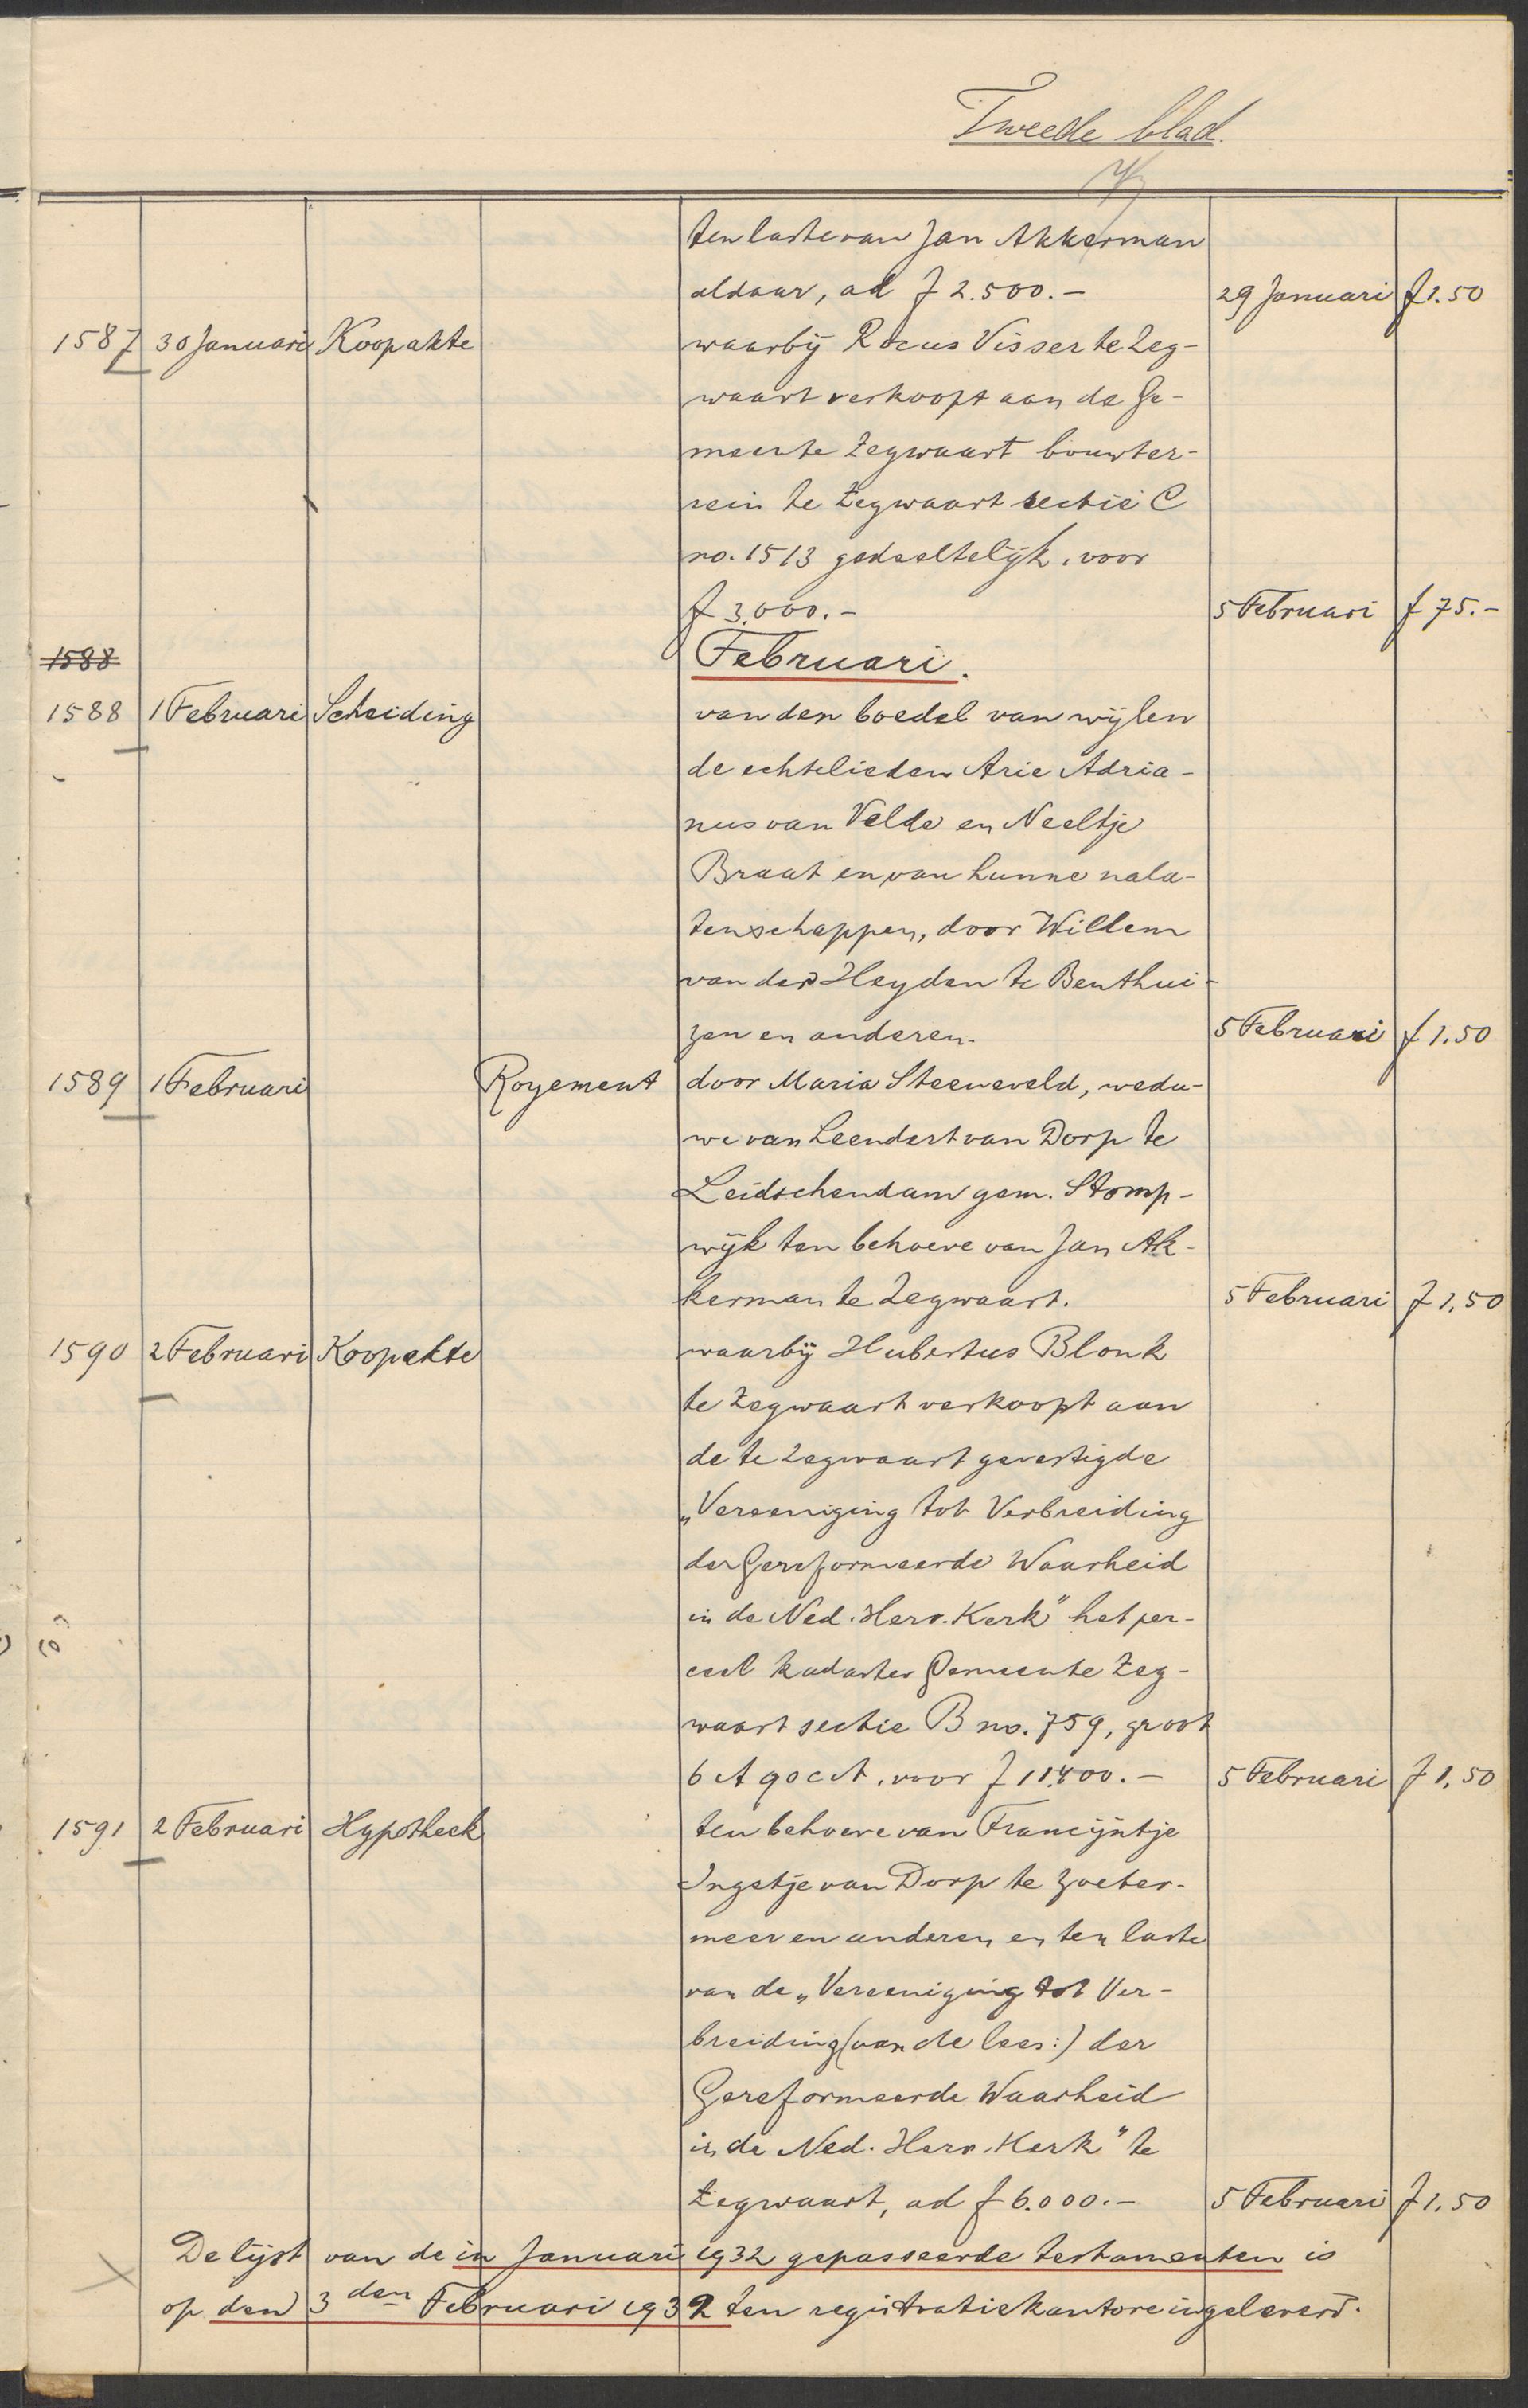 Tweede blad.
ten laste van Jan Akkerman
aldaar, ad f 2.500.- 29 Januari f 1.50
1587 30 Januari Koopakte waarbij Rocus Visser te Zeg-
waart verkoopt aan de Ge-
meente Zegwaart bouwter-
rein te Zegwaart sectie C
no. 1513 gedeeltelijk, voor
f 3.000.- 5 Februari f 75.-
1588 Februari.
1588 1 Februari Scheiding van den boedel van wijlen
de echtelieden Arie Adria-
nus van Velde en Neeltje
Braat en van hunne nala-
tenschappen, door Willem
van der Heyden te Benthui-
zen en anderen. 5 Februari f 1.50
1589 1 Februari Royement door Maria Steeneveld, wedu-
we van Leendert van Dorp te
Leidschendam gem. Stomp-
wijk ten behoeve van Jan Ak-
kerman te Zegwaart. 5 Februari f 1,50
1590 2 Februari Koopakte waarbij Hubertus Blonk
te Zegwaart verkoopt aan
de te Zegwaart gevestigde
„Vereeniging tot Verbreiding
der Gereformeerde Waarheid
in de Ned. Herv. Kerk" het per-
ceel kadaster Gemeente Zeg-
waart sectie B no. 759, groot
6 A 90 cA, voor f 11.400.- 5 Februari f 1,50
1591 2 Februari Hypotheek ten behoeve van Francijntje
Ingetje van Dorp te Zoeter-
meer en anderen en ten laste
van de „Vereeniging tot Ver-
breiding (van de lees:) der
Gereformeerde Waarheid
in de Ned. Herv. Kerk" te
Zegwaart, ad f 6.000.- 5 Februari f 1,50
De lijst van de in Januari 1932 gepasseerde testamenten is
op den 3den Februari 1932 ten registratiekantore ingeleverd.